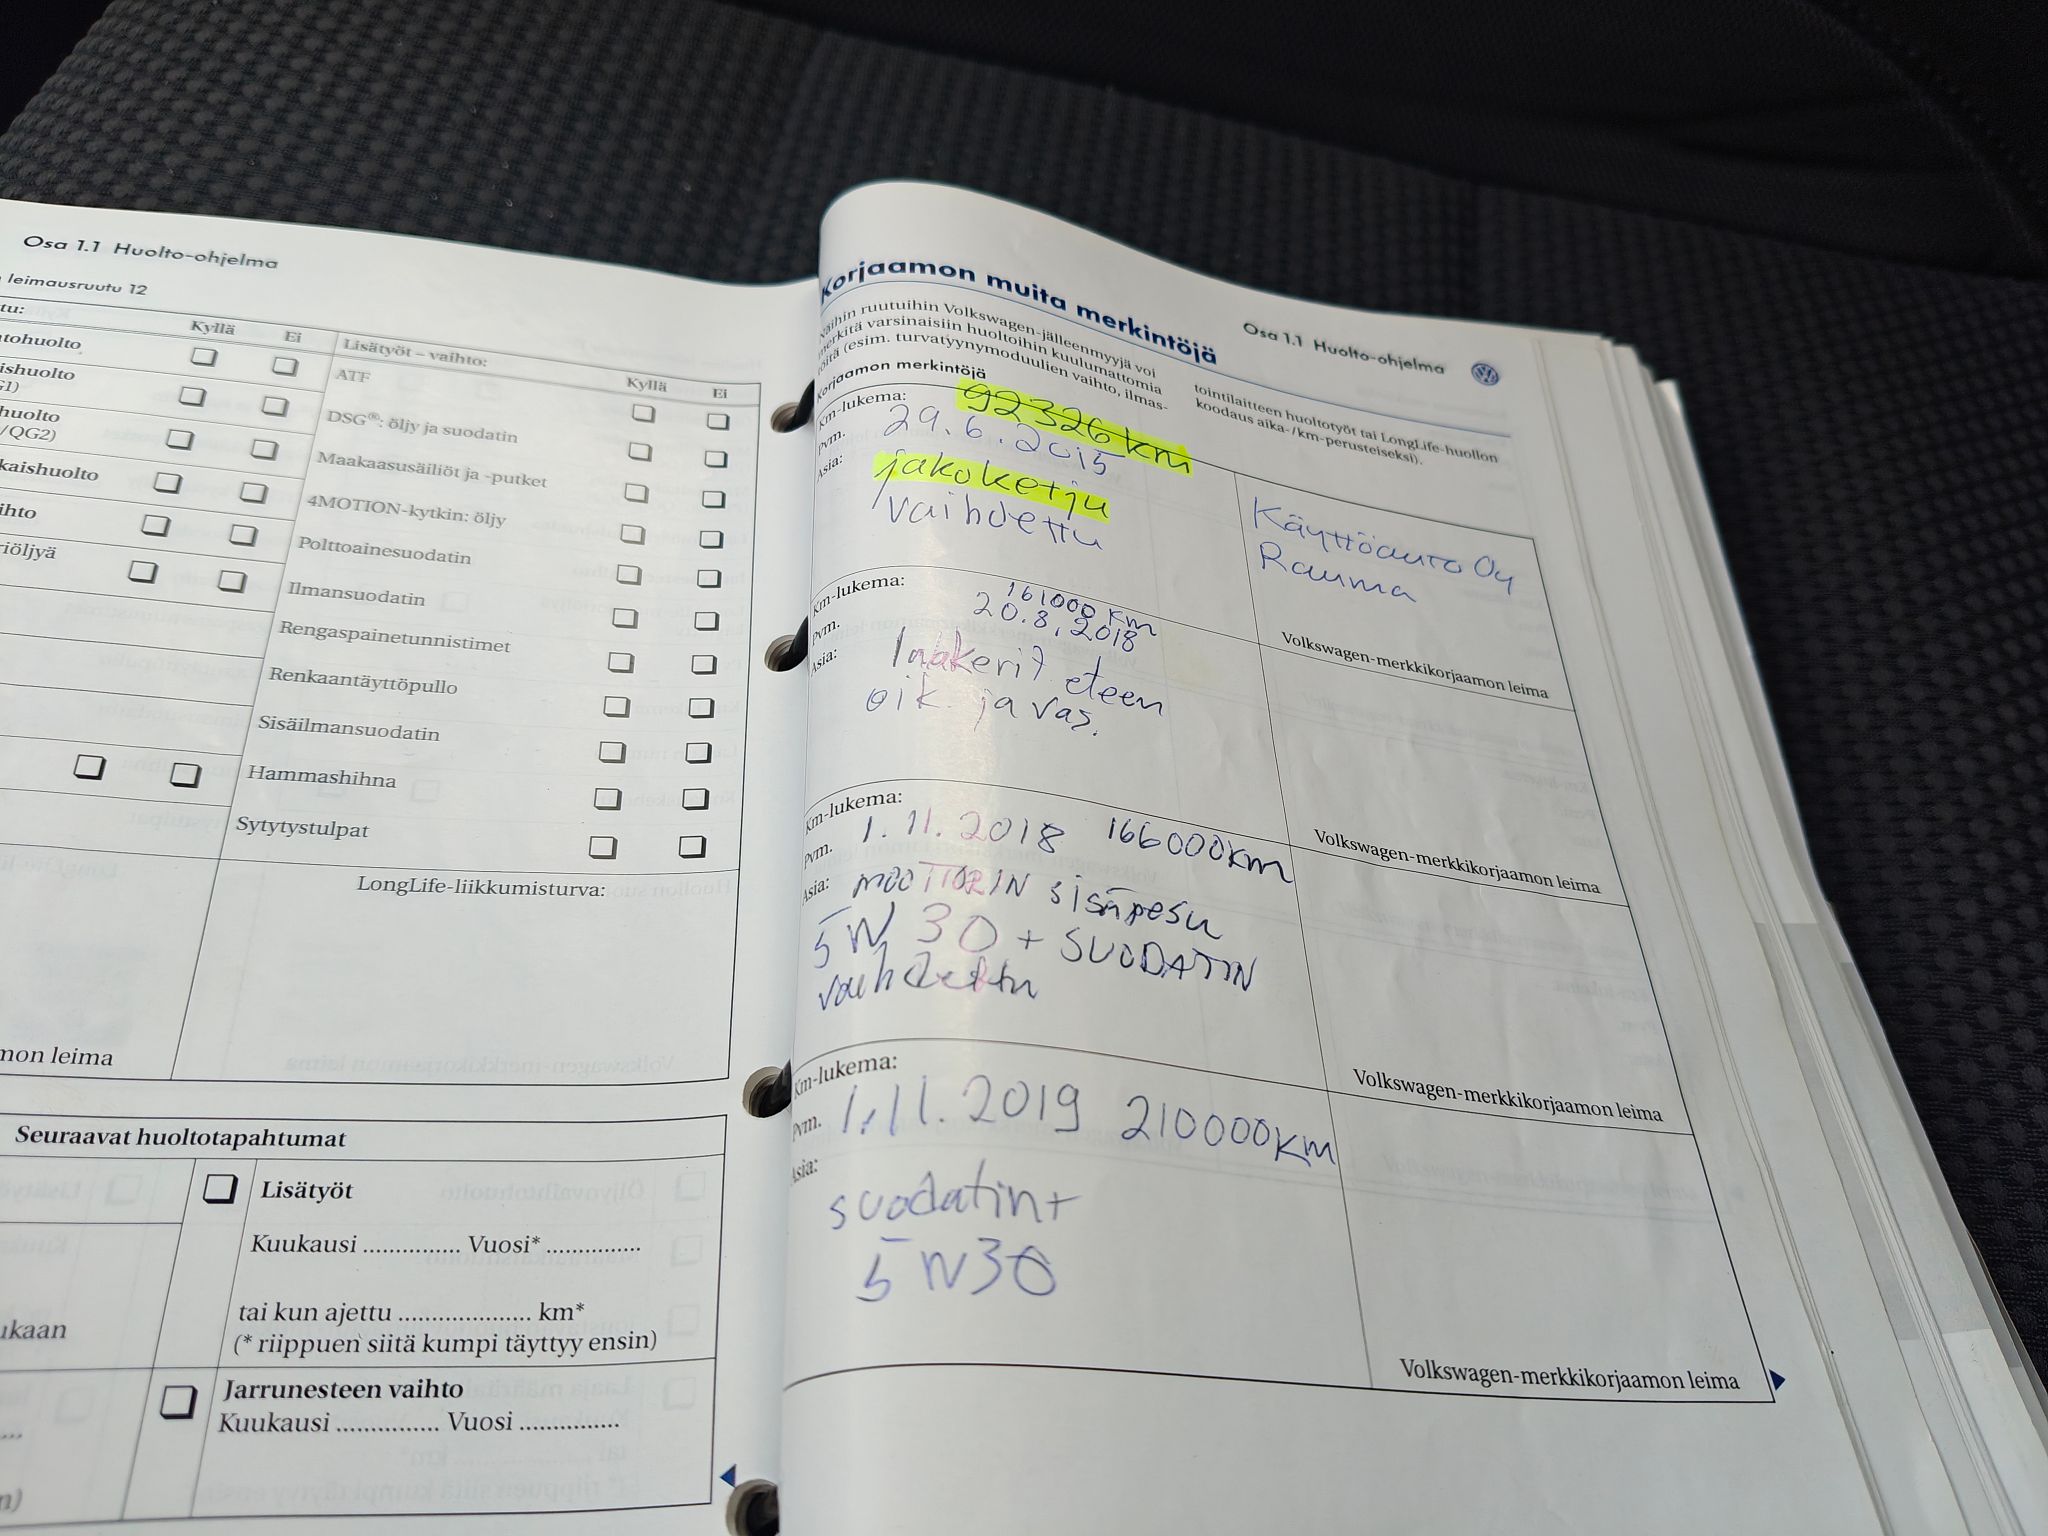 Osa 1.1 Huolto-ohjelma
leimausruutu 12
Kyllä Ei
Lisätyöt – vaihto:
Kyllä Ei
ATF
DSG®: öljy ja suodatin
Maakaasusäiliöt ja -putket
4MOTION-kytkin: öljy
Polttoainesuodatin
Ilmansuodatin
Rengaspainetunnistimet
Renkaantäyttöpullo
Sisäilmansuodatin
Hammashihna
Sytytystulpat
LongLife-liikkumisturva:
leima
Seuraavat huoltotapahtumat
Lisätyöt
Kuukausi ............... Vuosi* ...............
tai kun ajettu .................... km*
(* riippuen siitä kumpi täyttyy ensin)
Jarrunesteen vaihto
Kuukausi ............... Vuosi ...............
Osa 1.1 Huolto-ohjelma
Korjaamon muita merkintöjä
Näihin ruutuihin Volkswagen-jälleenmyyjä voi
merkitä varsinaisiin huoltoihin kuulumattomia
töitä (esim. turvatyynymoduulien vaihto, ilmas-
tointilaitteen huoltotyöt tai LongLife-huollon
koodaus aika-/km-perusteiseksi).
Korjaamon merkintöjä
Km-lukema: 92326 km
Pvm. 29.6.2015
Asia: jakoketju
vaihdettu
Käyttöauto Oy
Rauma
Volkswagen-merkkikorjaamon leima
Km-lukema: 161000 km
Pvm. 20.8.2018
Asia: laakerit eteen
oik. ja vas.
Volkswagen-merkkikorjaamon leima
Km-lukema:
Pvm. 1.11.2018 166000km
Asia: MOOTTORIN sisäpesu
5W30 + SUODATIN
vaihdettu
Volkswagen-merkkikorjaamon leima
Km-lukema:
Pvm. 1.11.2019 210000km
Asia:
suodatin+
5W30
Volkswagen-merkkikorjaamon leima